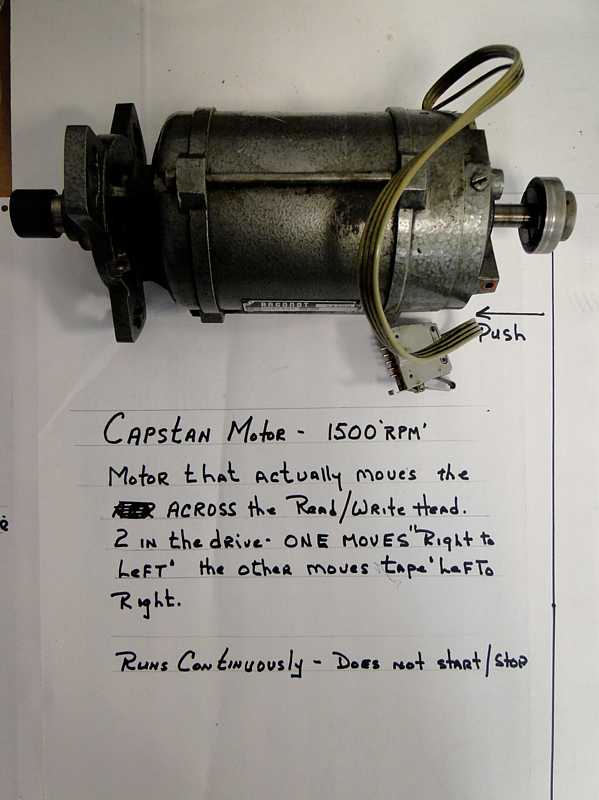 Push
CAPSTAN MOTOR - 1500 "RPM"
MOTOR that actually moves the
ACROSS the Read/Write Head.
2 IN the drive. ONE MOVES "Right to
LEFT" the other moves tape "LEFT to
Right.
RUNS CONTINUOUSLY - DOES NOT START/STOP